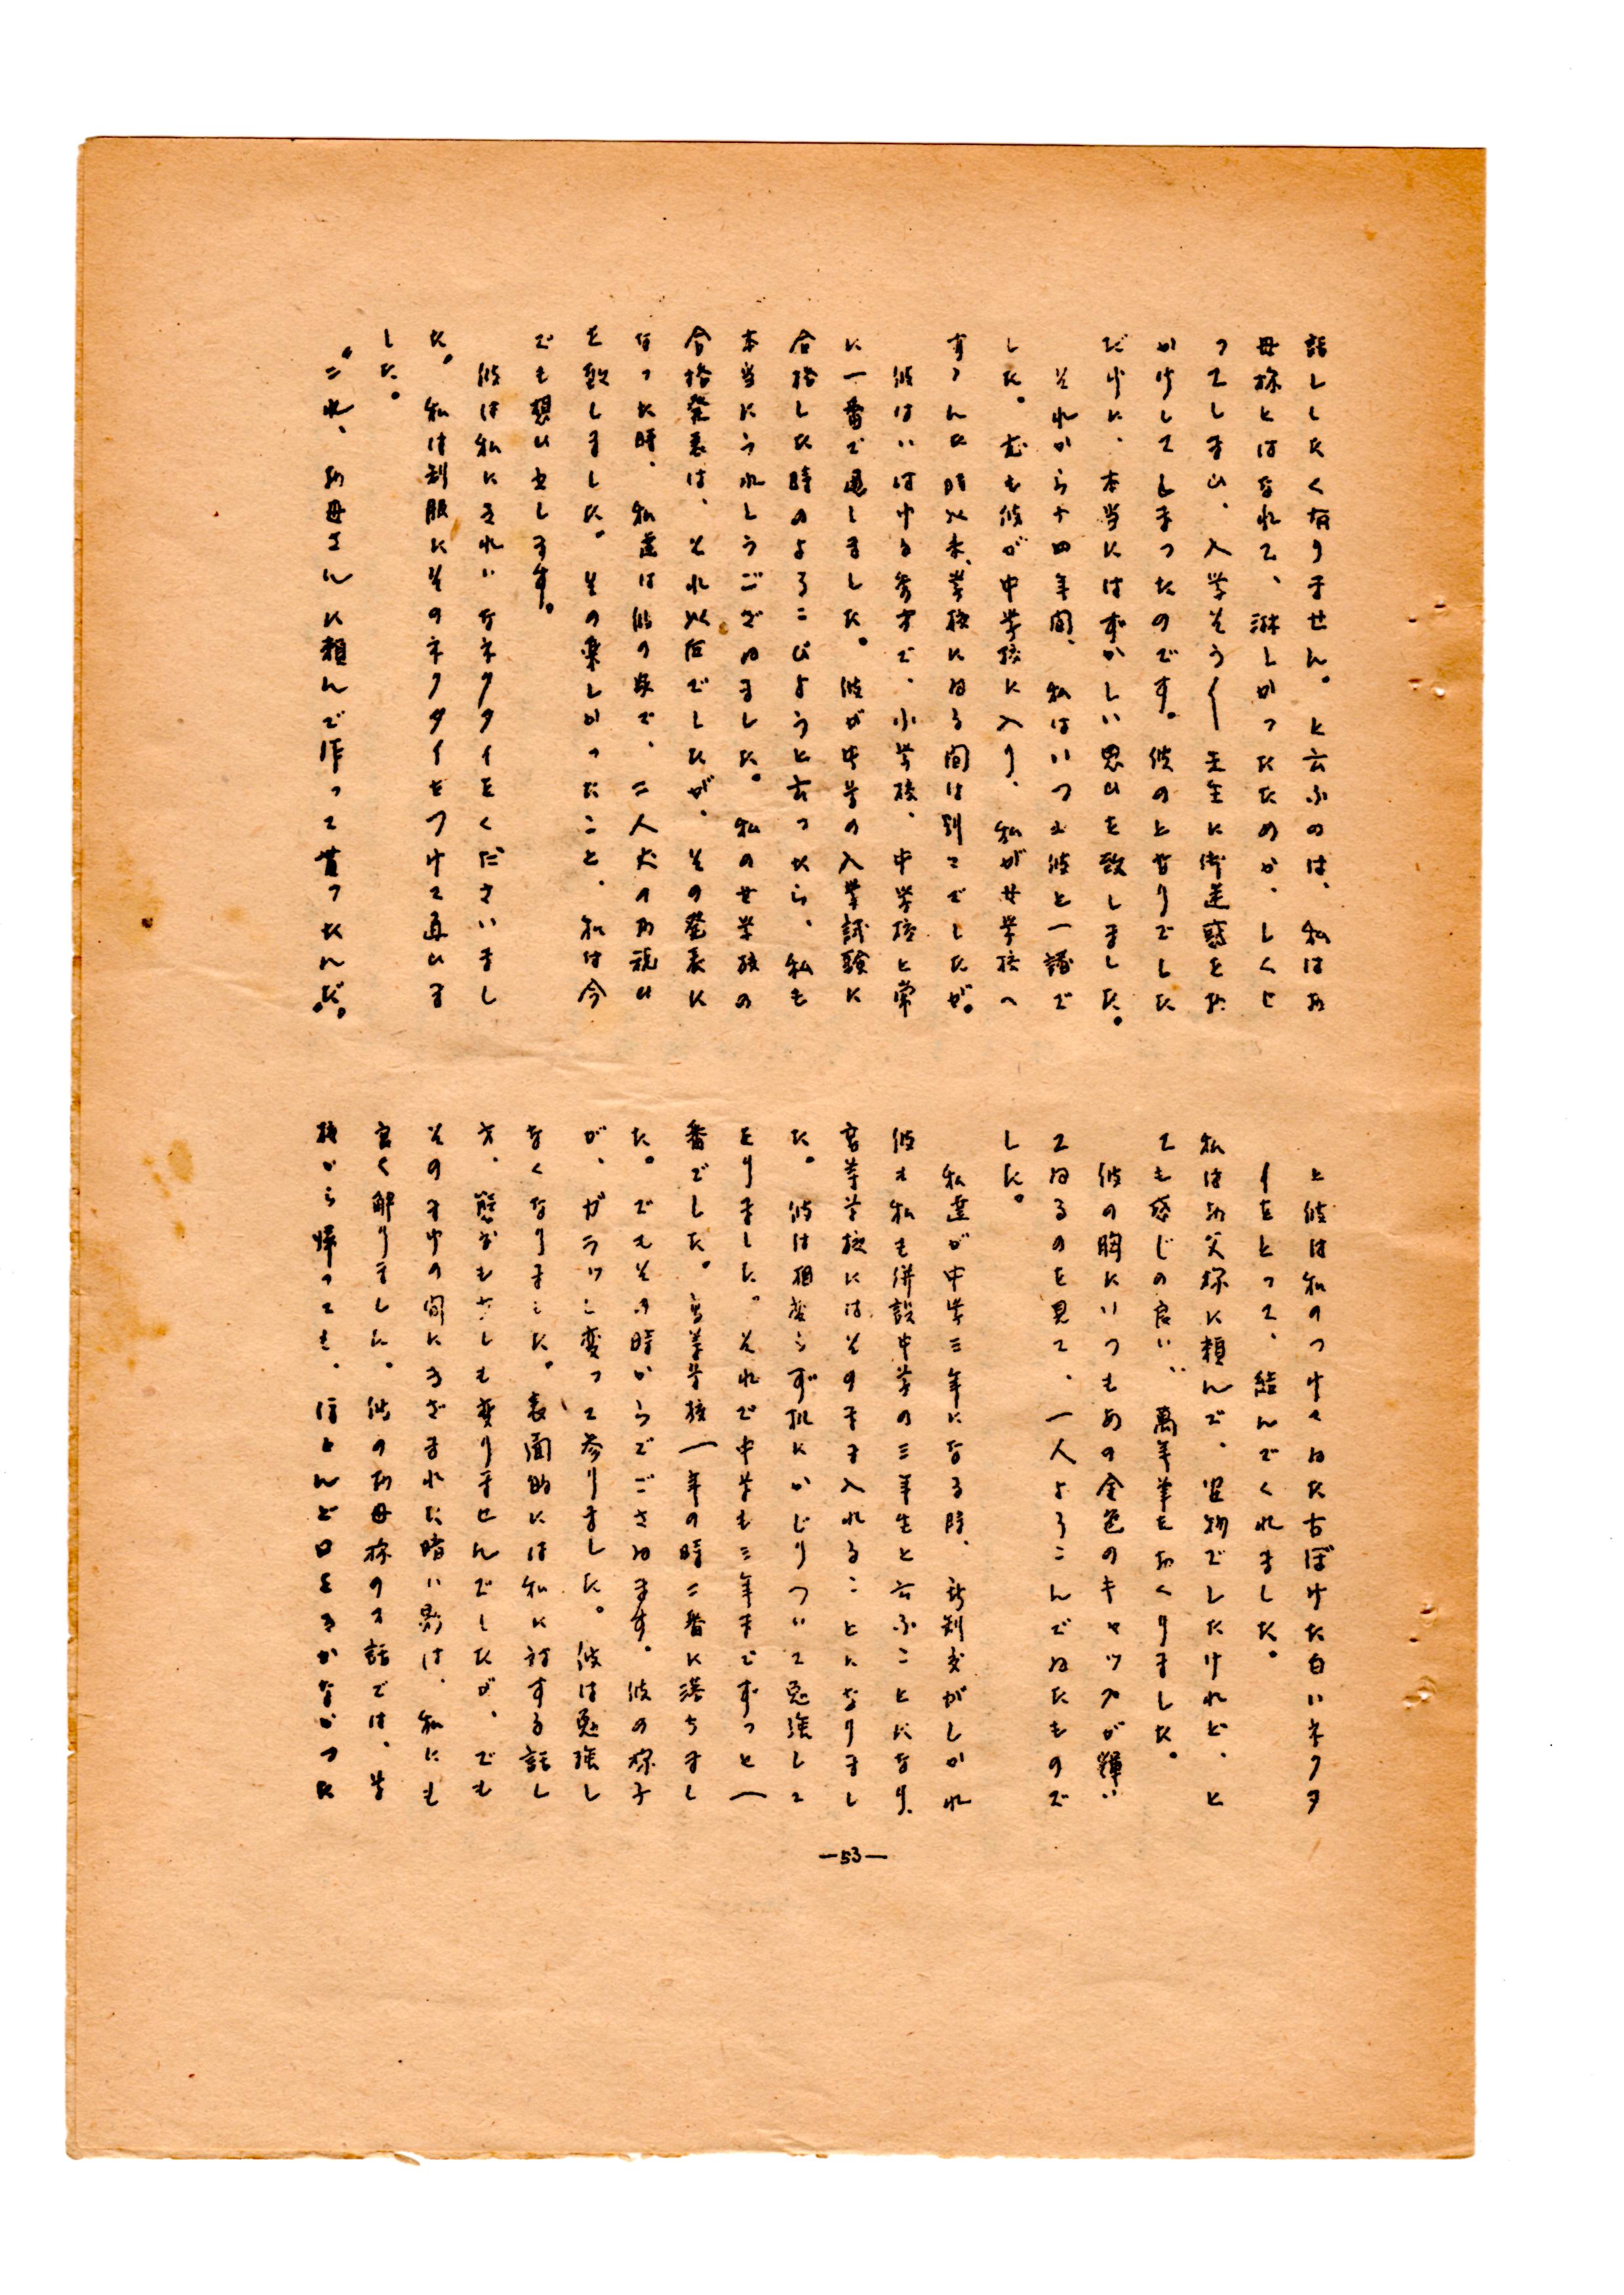 話ししたく有りません。と云ふのは、私はお
母様とはなれて、淋しかつたためか、しくじ
つてしまひ、入学そう〱先生に御迷惑をお
かけしてしまつたのです。彼のとなりでした
だけに、本当にはずかしい思ひを致しました。
それから十四年間、私はいつも彼と一諸で
した。尤も彼が中学校に入り、私が女学校へ
すゝんだ時以来、学校にゐる間は別でしたが。
彼はいはゆる秀才で、小学校、中学校と常
に一番で通しました。彼が中学の入学試験に
合格した時のよろこびようと云つたら、私も
本当にうれしうございました。私の女学校の
合格発表は、それ以后でしたが、その発表に
なつた時、私達は彼の家で、二人丈のお祝ひ
を致しました。その楽しかつたこと、私は今
でも想ひ出します。
彼は私にきれいなネクタイをくださいまし
た。私は制服にそのネクタイをつけて貰ひま
した。
〝これ、お母さんに頼んで作って貰つたんだ。〟
と彼は私のつけてゐた古ぼけた白いネクタ
イをとつて、結んでくれました。
私はお父様に頼んで、安物でしたけれど、と
ても感じの良い、萬年筆をおくりました。
彼の胸にいつもあの金色のキャップが輝い
てゐるのを見て、一人よろこんでゐたもので
した。
私達が中学三年になる時、新制度がしかれ
彼も私も併設中学の三年生と云ふことになり、
高等学校にはそのまま入れることになりまし
た。彼は相変らず机にかじりついて勉強して
をりました。それで中学も三年までずつと一
番でした。高等学校一年の時二番に落ちまし
た。でもその時からでございます。彼の様子
が、ガラッと変って参りました。彼は勉強し
なくなりました。表面的には私に対する話し
方、態度も少しも変りませんでしたが、でも
そのまゆの間にきざまれた暗い影は、私にも
良く解りました。彼のお母様のお話では、学
校から帰っても、ほとんど口をきかなかつた
—53—